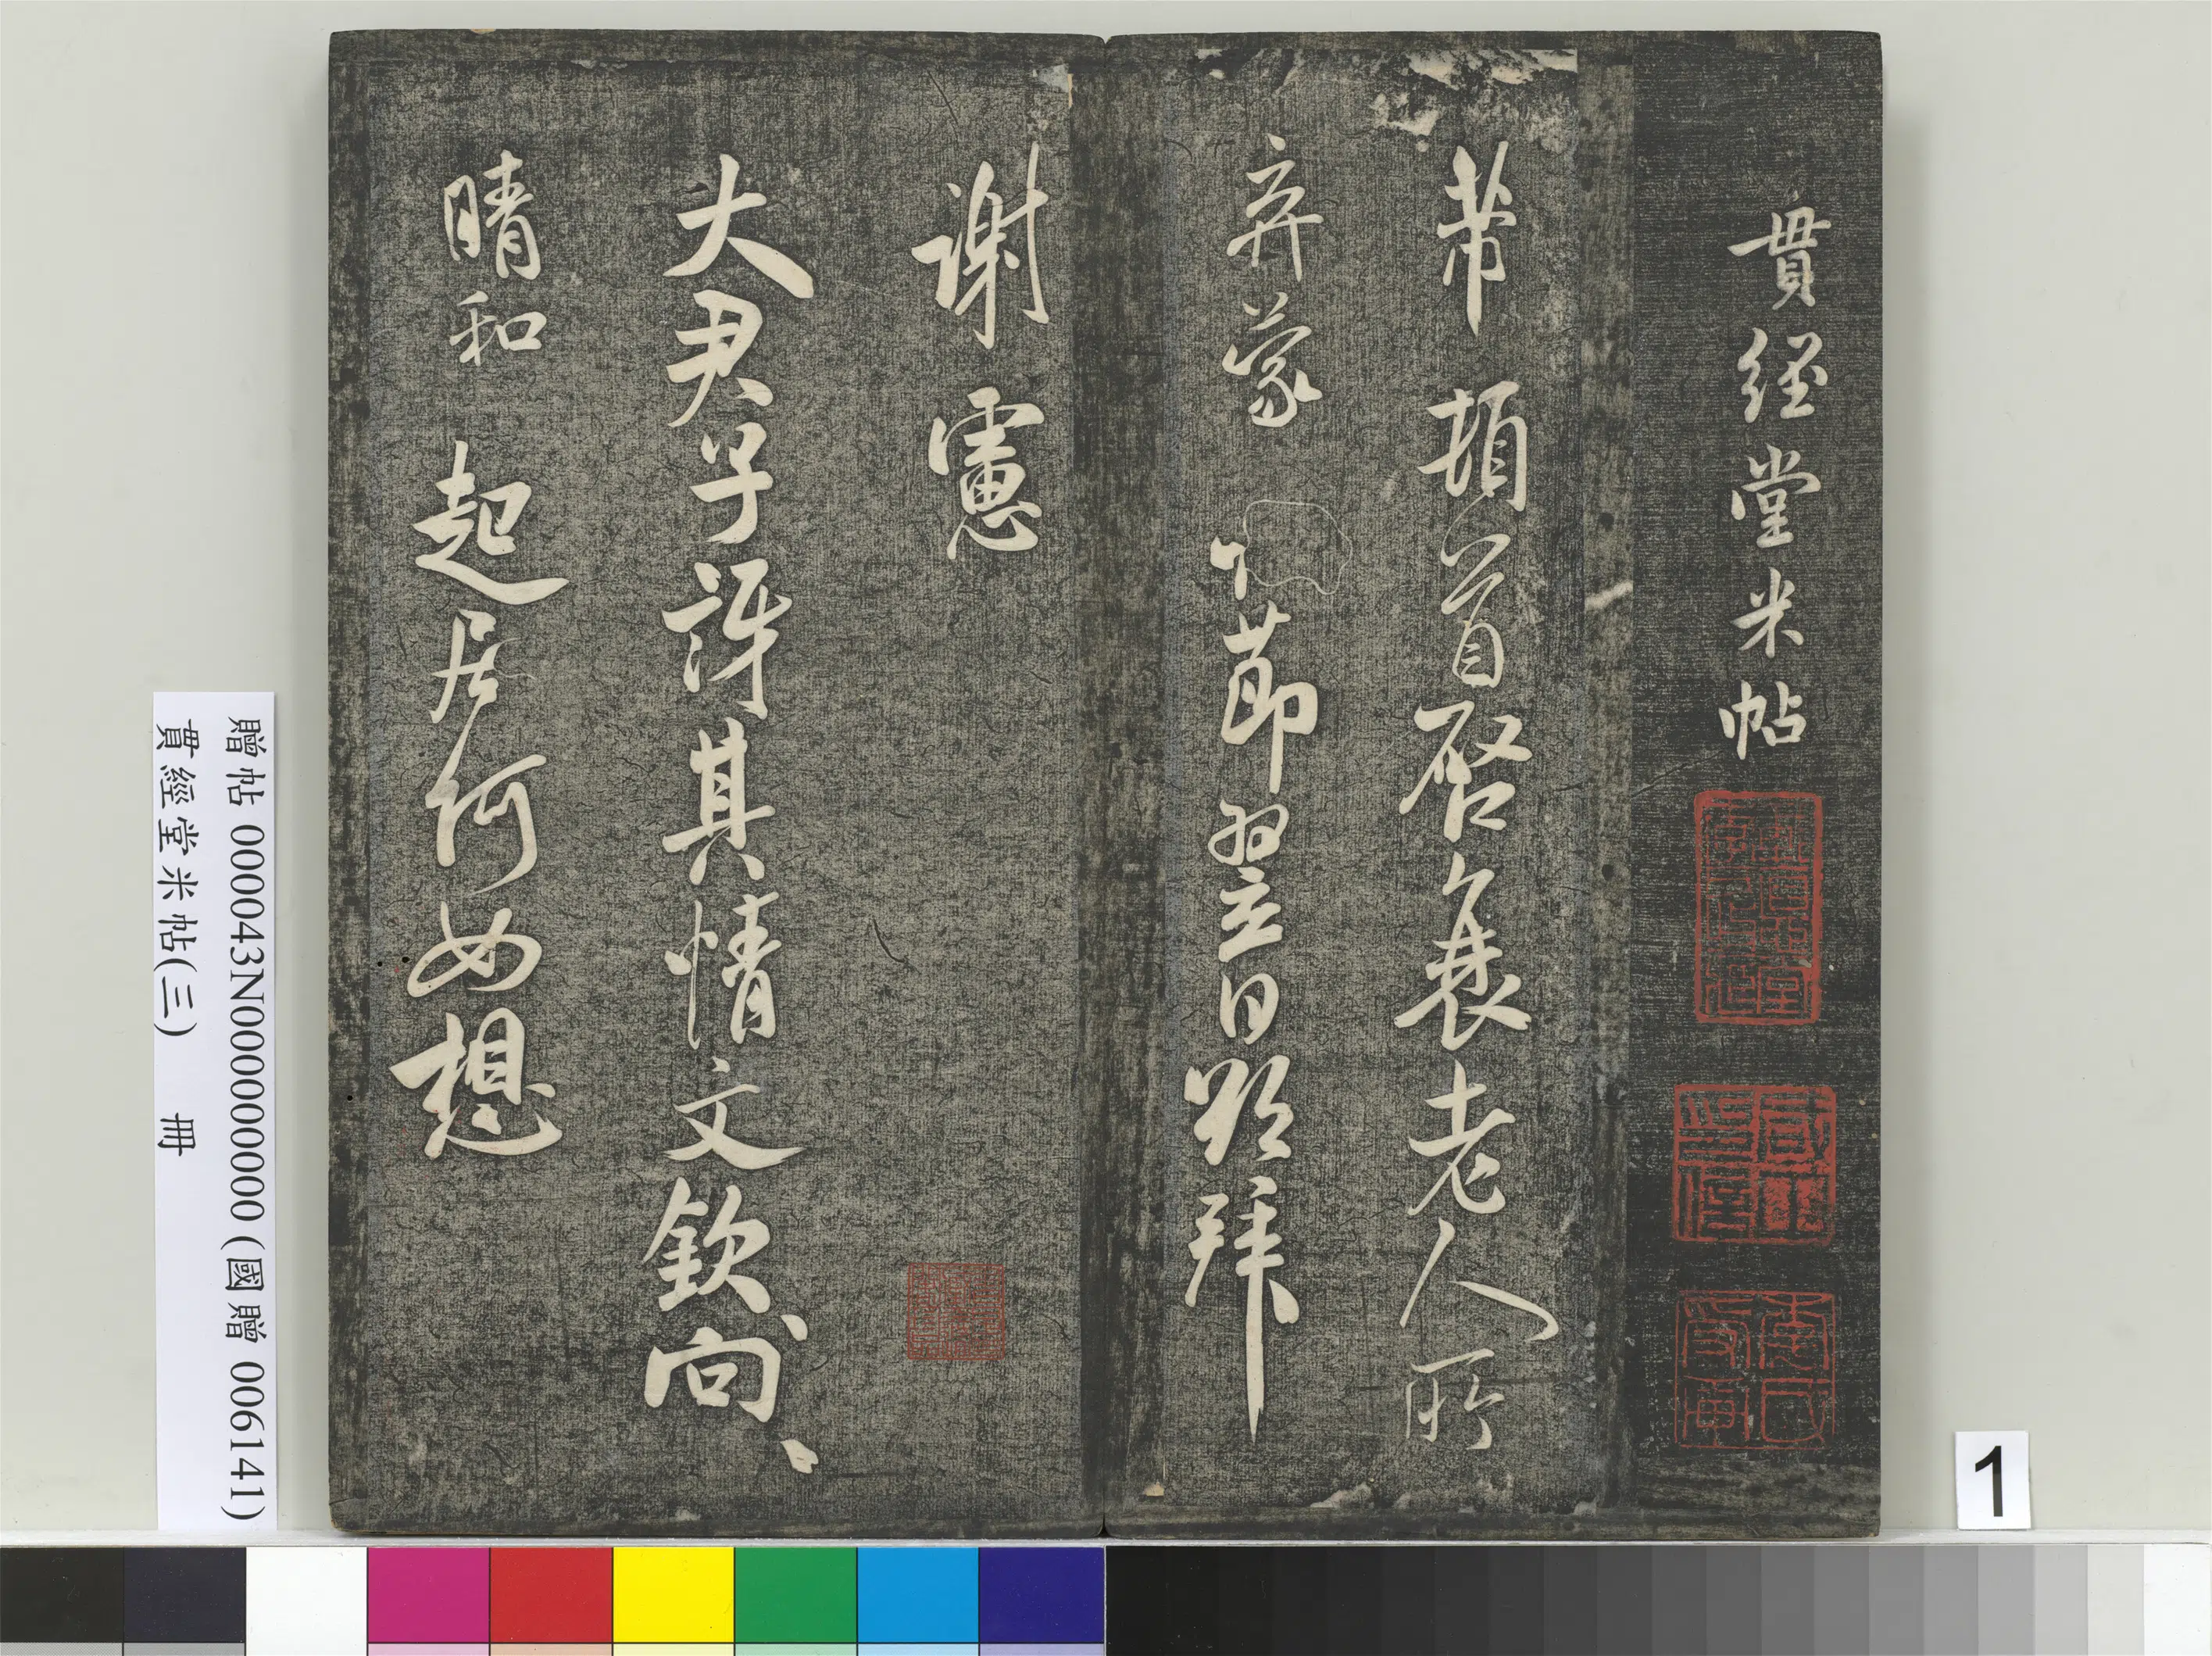 貫經堂米帖
芾 頓首啓衰老人所
弃蒙 節翌日㱕拜
謝憲
大君子評其情文欽、向、
晴和 起居何如想
贈帖 000043N000000000 (國贈 006141)
貫經堂米帖(三) 冊
1